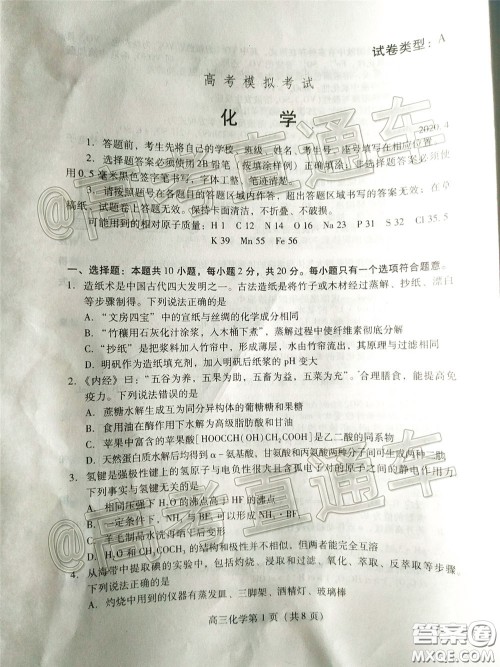 试卷类型：A
高考模拟考试
化 学
2020.4
1. 答题前，考生先将自己的学校、班级、姓名、考生号、座号填写在相应位置。
2. 选择题答案必须使用2B铅笔（按填涂样例）正确填涂；非选择题答案必须使
用0.5毫米黑色签字笔书写，字体工整、笔迹清楚。
3. 请按照题号在各题目的答题区域内作答，超出答题区域书写的答案无效；在草
稿纸、试题卷上答题无效。保持卡面清洁，不折叠、不破损。
可能用到的相对原子质量：H 1 C 12 N 14 O 16 Na 23 P 31 S 32 Cl 35.5
K 39 Mn 55 Fe 56
一、选择题：本题共10小题，每小题2分，共20分。每小题只有一个选项符合题意。
1. 造纸术是中国古代四大发明之一。古法造纸是将竹子或木材经过蒸解、抄纸、漂白
等步骤制得。下列说法正确的是
A. “文房四宝”中的宣纸与丝绸的化学成分相同
B. “竹穰用石灰化汁涂浆，入木桶下煮”，蒸解过程中使纤维素彻底分解
C. “抄纸”是把浆料加入竹帘中，形成薄层，水由竹帘流出，其原理与过滤相同
D. 明矾作为造纸填充剂，加入明矾后纸浆的pH变大
2. 《内经》曰：“五谷为养，五果为助，五畜为益，五菜为充”。合理膳食，能提高免
疫力。下列说法错误的是
A. 蔗糖水解生成互为同分异构体的葡萄糖和果糖
B. 食用油在酯酶作用下水解为高级脂肪酸和甘油
C. 苹果中富含的苹果酸[HOOCCH(OH)CH₂COOH]是乙二酸的同系物
D. 天然蛋白质水解后均得到α-氨基酸，甘氨酸和丙氨酸两种分子间可生成两种二肽
3. 氢键是强极性键上的氢原子与电负性很大且含孤电子对的原子之间的静电作用力
下列事实与氢键无关的是
A. 相同压强下H₂O的沸点高于HF的沸点
B. 一定条件下，NH₃与BF₃可以形成NH₃·BF₃
C. 羊毛制品水洗再晒干后变形
D. H₂O和CH₃COCH₃的结构和极性并不相似，但两者能完全互溶
4. 从海带中提取碘的实验中，包括灼烧、浸取和过滤、氧化、萃取、反萃取等步骤。
下列说法正确的是
A. 灼烧中用到的仪器有蒸发皿、三脚架、酒精灯、玻璃棒
高三化学第1页（共8页）